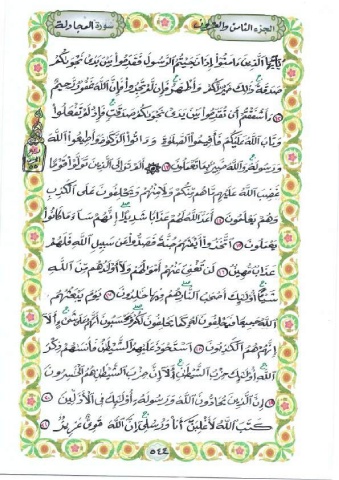 الجزء الثامن والعشرون سورة المجادلة
يَٰٓأَيُّهَا ٱلَّذِينَ ءَامَنُوٓا۟ إِذَا نَٰجَيْتُمُ ٱلرَّسُولَ فَقَدِّمُوا۟ بَيْنَ يَدَىْ نَجْوَىٰكُمْ
صَدَقَةً ذَٰلِكَ خَيْرٌ لَّكُمْ وَأَطْهَرُ فَإِن لَّمْ تَجِدُوا۟ فَإِنَّ ٱللَّهَ غَفُورٌ رَّحِيمٌ
١٢ ءَأَشْفَقْتُمْ أَن تُقَدِّمُوا۟ بَيْنَ يَدَىْ نَجْوَىٰكُمْ صَدَقَٰتٍ فَإِذْ لَمْ تَفْعَلُوا۟
وَتَابَ ٱللَّهُ عَلَيْكُمْ فَأَقِيمُوا۟ ٱلصَّلَوٰةَ وَءَاتُوا۟ ٱلزَّكَوٰةَ وَأَطِيعُوا۟ ٱللَّهَ
وَرَسُولَهُۥ وَٱللَّهُ خَبِيرٌۢ بِمَا تَعْمَلُونَ ١٣ أَلَمْ تَرَ إِلَى ٱلَّذِينَ تَوَلَّوْا۟ قَوْمًا
غَضِبَ ٱللَّهُ عَلَيْهِم مَّا هُم مِّنكُمْ وَلَا مِنْهُمْ وَيَحْلِفُونَ عَلَى ٱلْكَذِبِ
وَهُمْ يَعْلَمُونَ ١٤ أَعَدَّ ٱللَّهُ لَهُمْ عَذَابًا شَدِيدًا إِنَّهُمْ سَآءَ مَا كَانُوا۟
يَعْمَلُونَ ١٥ ٱتَّخَذُوٓا۟ أَيْمَٰنَهُمْ جُنَّةً فَصَدُّوا۟ عَن سَبِيلِ ٱللَّهِ فَلَهُمْ
عَذَابٌ مُّهِينٌ ١٦ لَّن تُغْنِىَ عَنْهُمْ أَمْوَٰلُهُمْ وَلَآ أَوْلَٰدُهُم مِّنَ ٱللَّهِ
شَيْـًٔا أُو۟لَٰٓئِكَ أَصْحَٰبُ ٱلنَّارِ هُمْ فِيهَا خَٰلِدُونَ ١٧ يَوْمَ يَبْعَثُهُمُ
ٱللَّهُ جَمِيعًا فَيَحْلِفُونَ لَهُۥ كَمَا يَحْلِفُونَ لَكُمْ وَيَحْسَبُونَ أَنَّهُمْ عَلَىٰ شَىْءٍ أَلَآ
إِنَّهُمْ هُمُ ٱلْكَٰذِبُونَ ١٨ ٱسْتَحْوَذَ عَلَيْهِمُ ٱلشَّيْطَٰنُ فَأَنسَىٰهُمْ ذِكْرَ
ٱللَّهِ أُو۟لَٰٓئِكَ حِزْبُ ٱلشَّيْطَٰنِ أَلَآ إِنَّ حِزْبَ ٱلشَّيْطَٰنِ هُمُ ٱلْخَٰسِرُونَ
١٩ إِنَّ ٱلَّذِينَ يُحَآدُّونَ ٱللَّهَ وَرَسُولَهُۥٓ أُو۟لَٰٓئِكَ فِى ٱلْأَذَلِّينَ ٢٠
كَتَبَ ٱللَّهُ لَأَغْلِبَنَّ أَنَا۠ وَرُسُلِىٓ إِنَّ ٱللَّهَ قَوِىٌّ عَزِيزٌ ٢١
٥٤٤